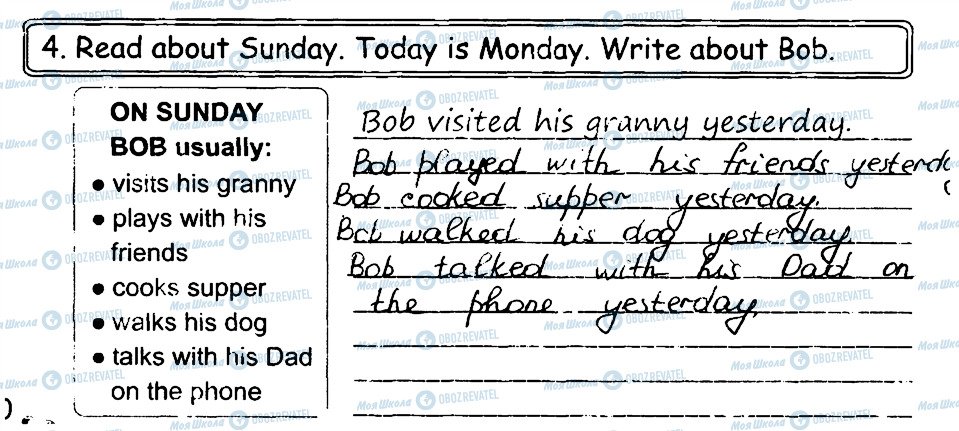 4. Read about Sunday. Today is Monday. Write about Bob.
ON SUNDAY
BOB usually:
• visits his granny
• plays with his
friends
• cooks supper
• walks his dog
• talks with his Dad
on the phone
Bob visited his granny yesterday.
Bob played with his friends yesterd
Bob cooked supper yesterday.
Bob walked his dog yesterday.
Bob talked with his Dad on
the phone yesterday.
Моя Школа OBOZREVATEL